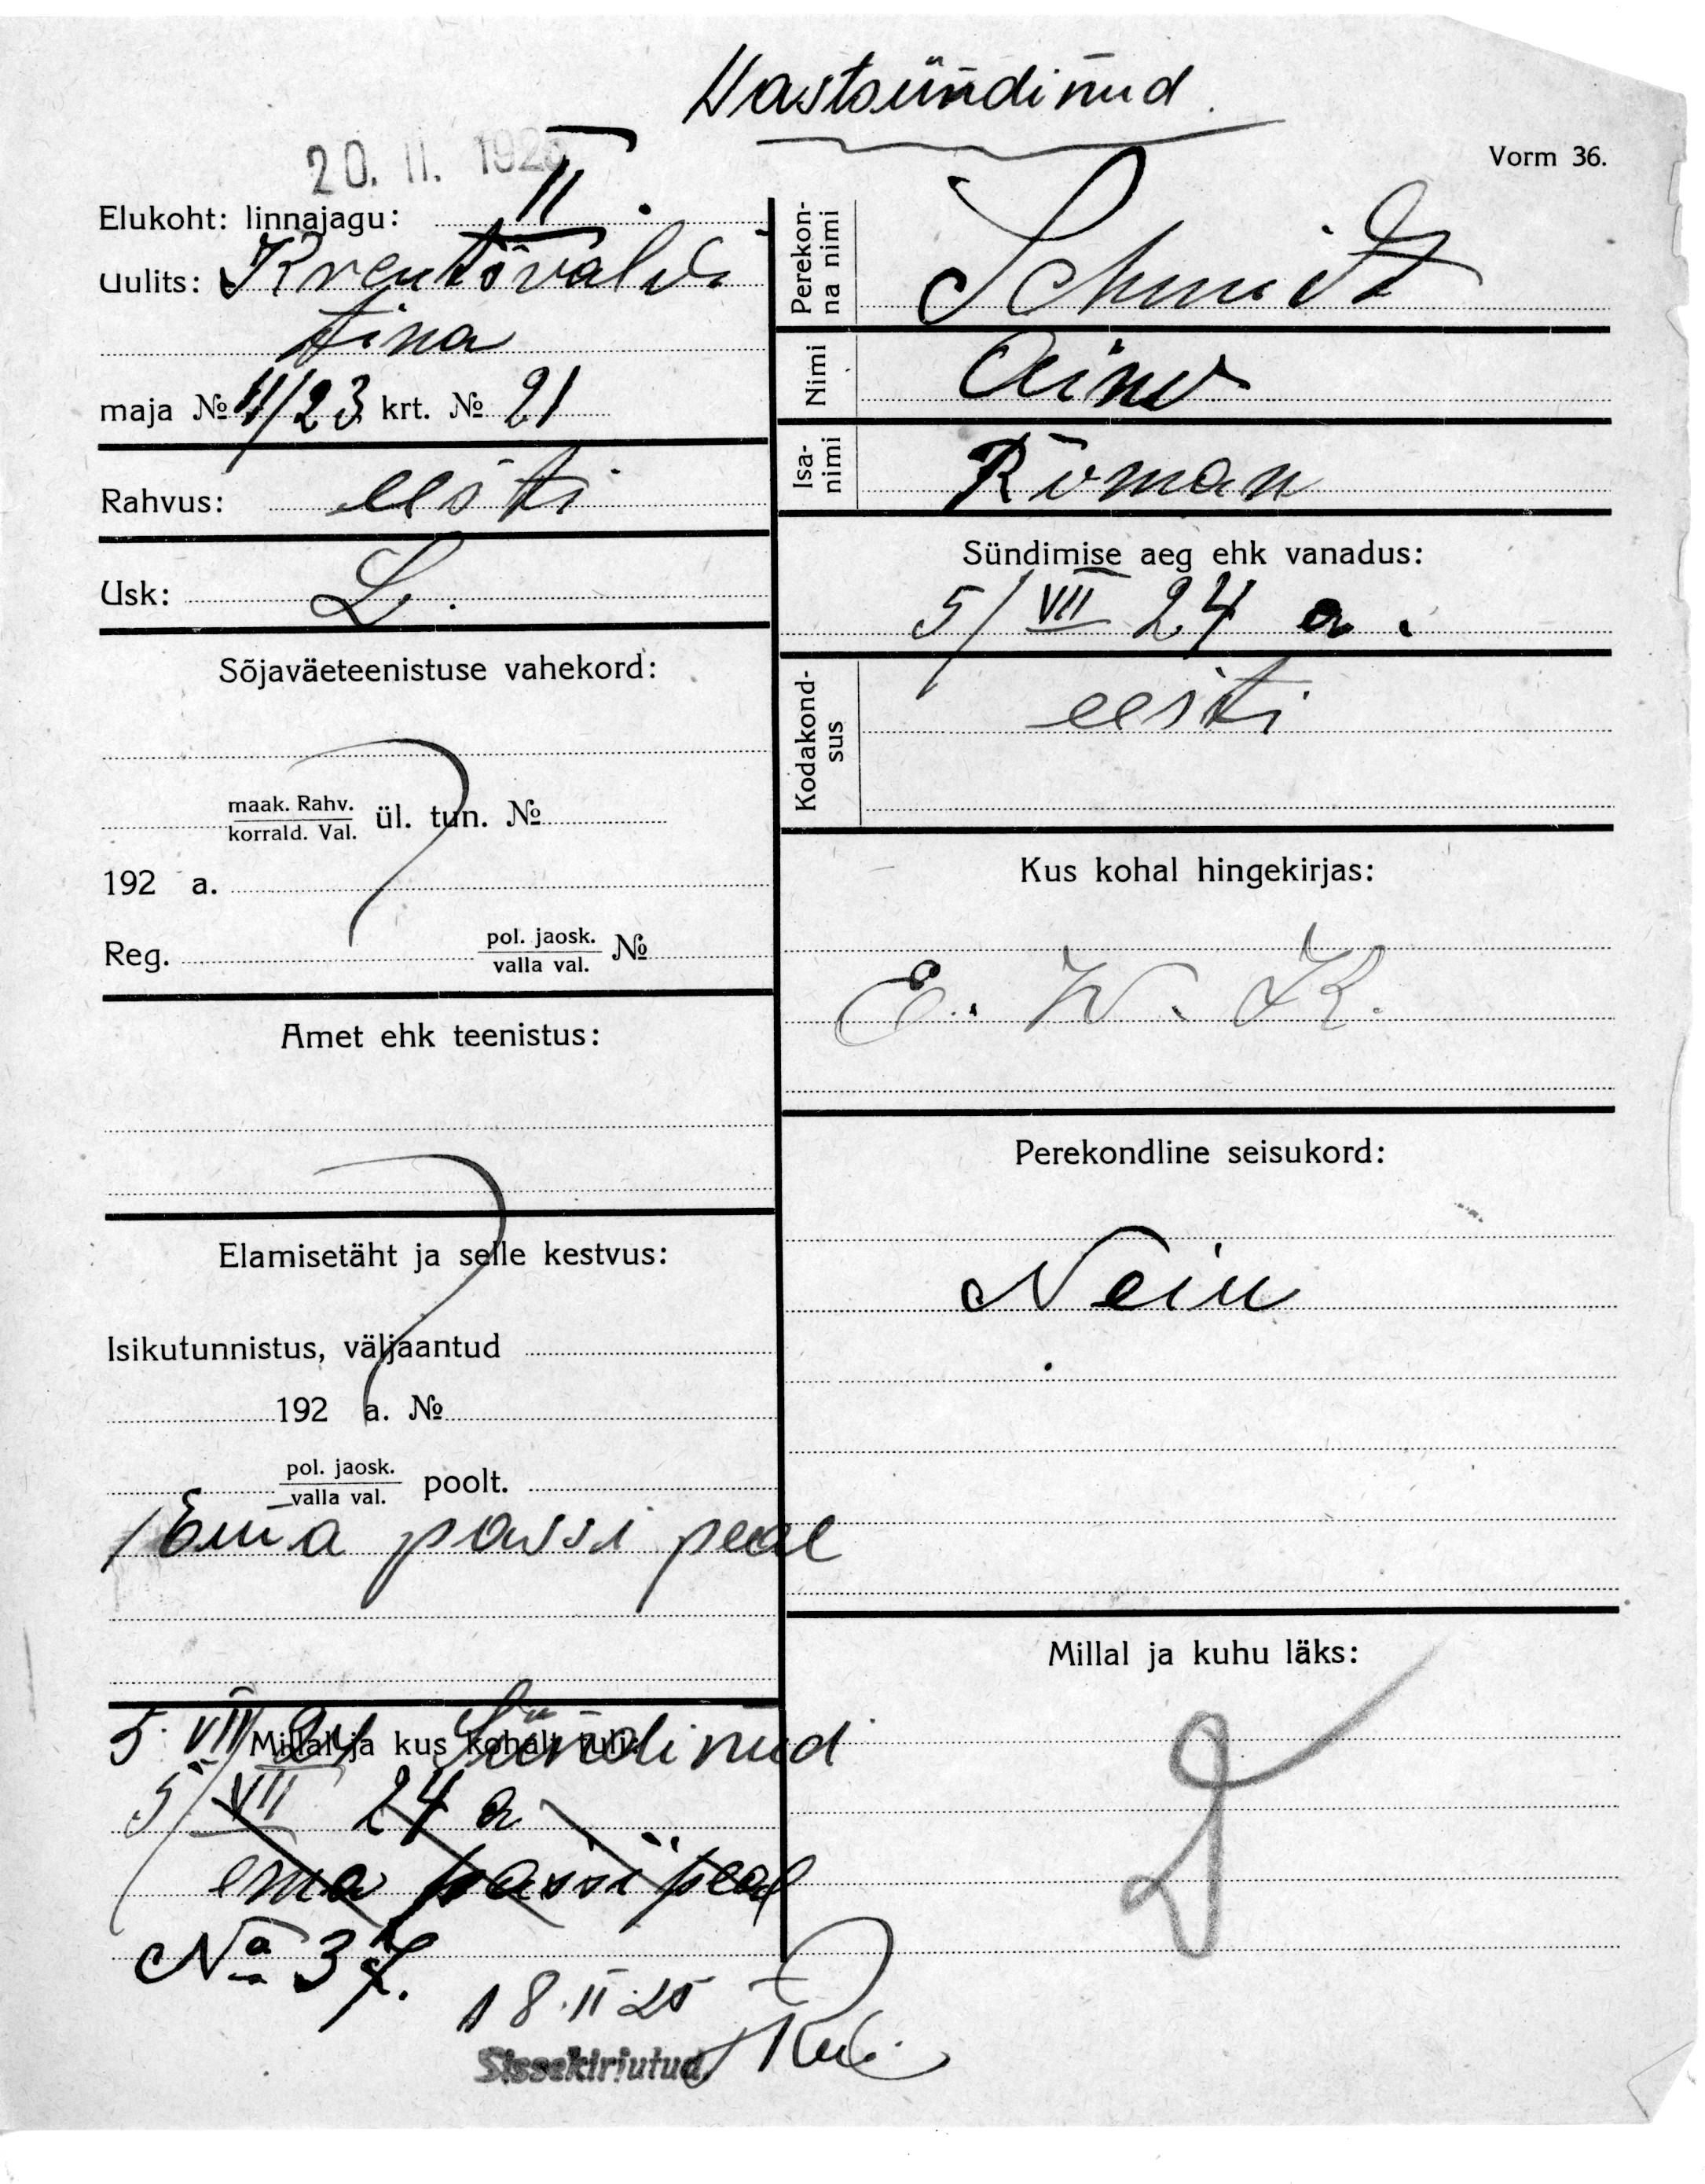 Wastsündinud.
Vorm 36.
20. II. 192
Elukoht: linnajagu: II.
Uulits: Kreutzvaldi
tina
maja № 11/23 krt. № 21
Rahvus: eesti
Usk: L.
Sõjaväeteenistuse vahekord:
maak. Rahv.
korrald. Val. ül. tun. №
192 a.
Reg. pol. jaosk.
valla val. №
Amet ehk teenistus:
Elamisetäht ja selle kestvus:
Isikutunnistus, väljaantud
192 a. №
pol. jaosk.
valla val. poolt.
Ema passi peal
Millal ja kus kohalt tuli:
5 VII 24 Sündinud
5/VII 24 a
ema passi peal
№ 37.
18.II.25
Sissekirjutud
Perekon-
na nimi Schmidt
Nimi Aino
Isa-
nimi Roman
Sündimise aeg ehk vanadus:
5/VII 24 a.
Kodakond-
sus eesti
Kus kohal hingekirjas:
E. W. K.
Perekondline seisukord:
Neiu
Millal ja kuhu läks: